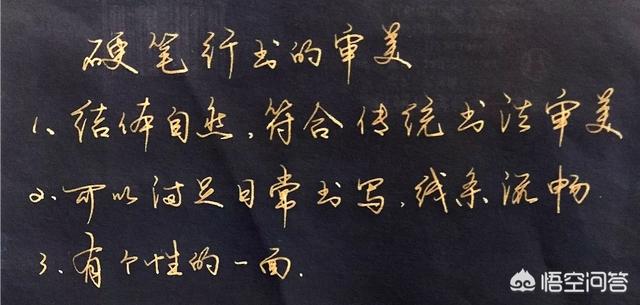 硬笔行书的审美
1、结体自然,符合传统书法审美
2.可以满足日常书写,线条流畅
3.有个性的一面.
悟空问答